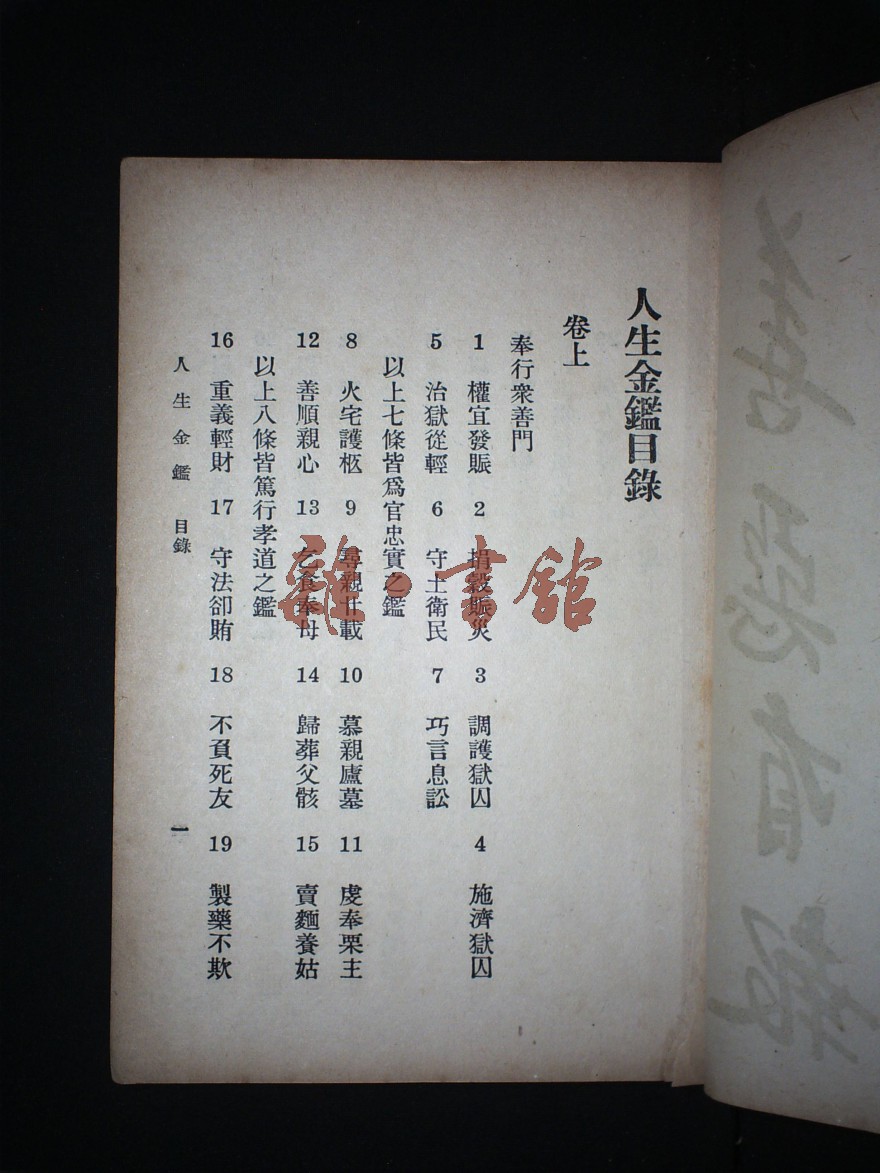 人生金鑑目錄
卷上
奉行衆善門
1 權宜發賑 2 捐穀賑災 3 調護獄囚 4 施濟獄囚
5 治獄從輕 6 守土衛民 7 巧言息訟
以上七條皆爲官忠實之鑑
8 火宅護柩 9 尋親廿載 10 慕親廬墓 11 虔奉栗主
12 善順親心 13 乞食奉母 14 歸葬父骸 15 賣麵養姑
以上八條皆篤行孝道之鑑
16 重義輕財 17 守法卻賄 18 不負死友 19 製藥不欺
人生金鑑 目錄
一
雜·書館